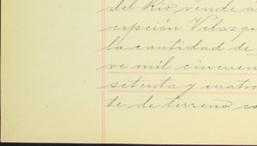 del Rio, vende á
cepción Velasq
la cantidad de
ve mil cincuen
setenta y cuatro
te de terreno